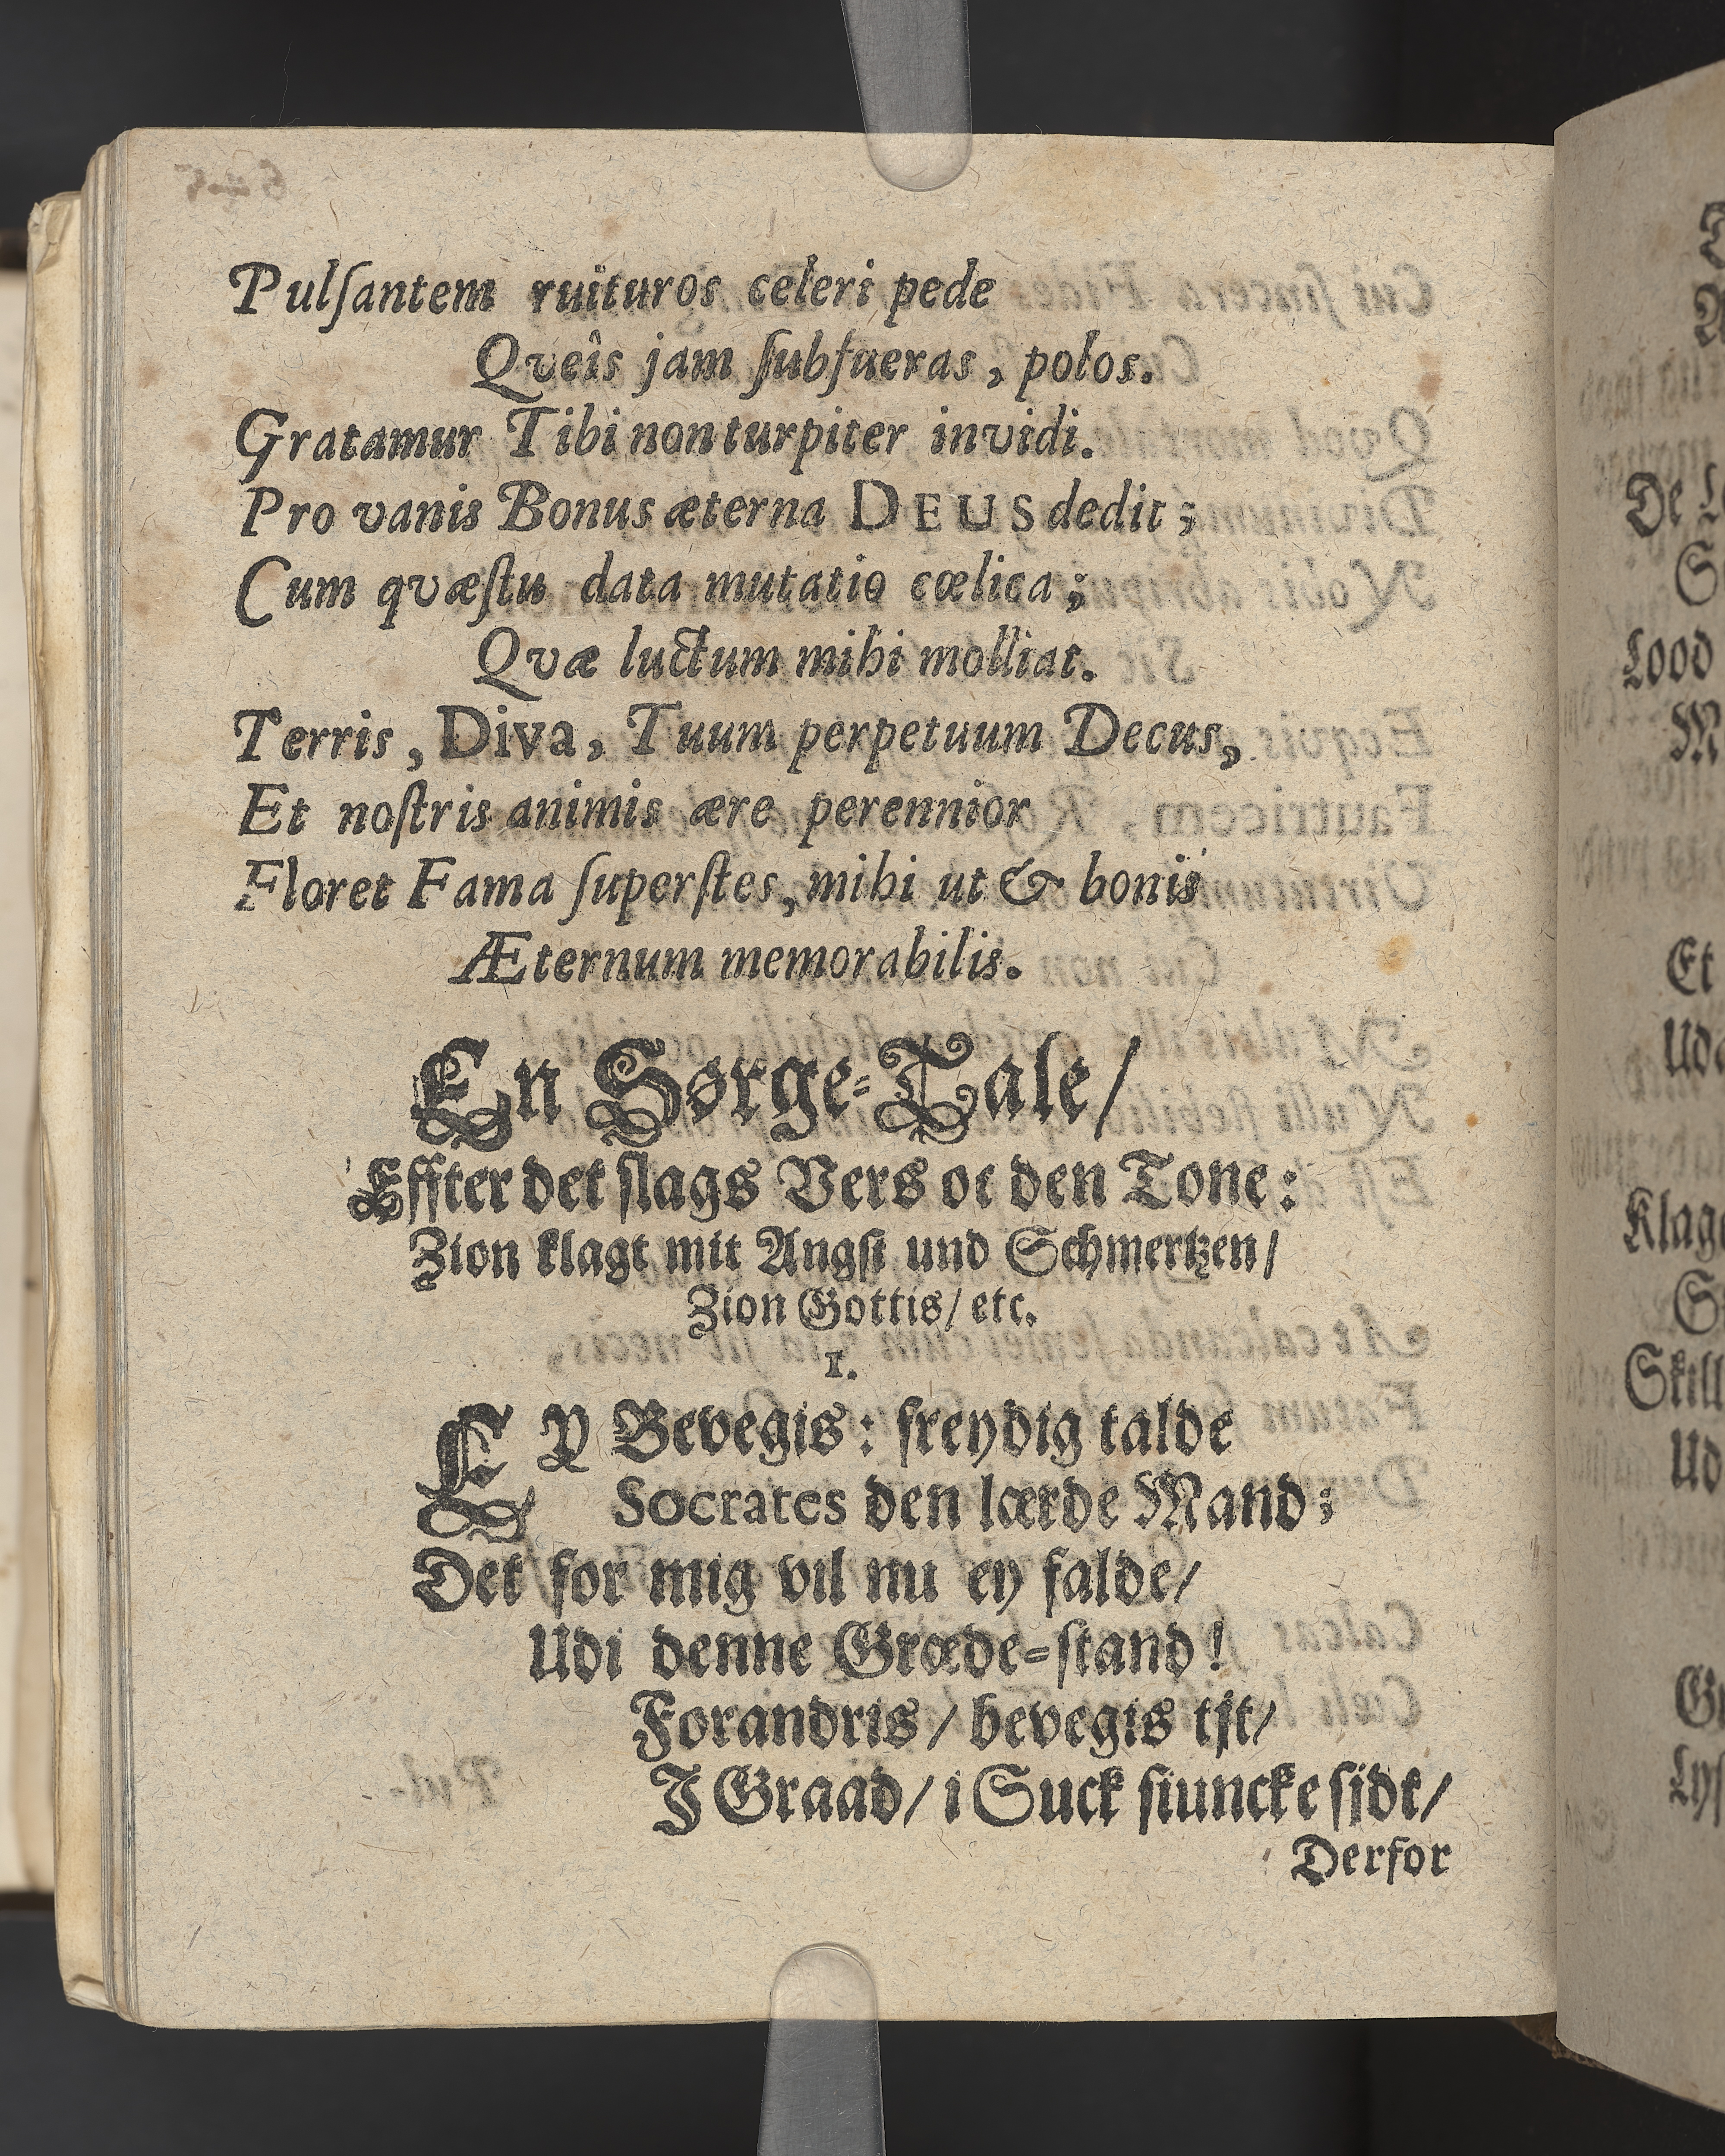 Pulſantem ruituros celeri pede
Qveîs jam ſubfueras, polos.
Gratamur Tibi non turpiter invidi.
Pro vanis Bonus æterna DEUS dedit;
Cum qvæſtu data mutatio cœlica;
Qvæ luctum mihi molliat.
Terris, Diva, Tuum perpetuum Decus,
Et noſtris animis ære perennior
Floret Fama ſuperſtes, mihi ut & bonis
Æternum memorabilis.
En Sørge-Tale/
Effter det ſlags Vers oc den Tone:
Zion klagt mit Angſt und Schmertzen/
Zion Gottis/ etc.
1.
EY Bevegis: freydig talde
Socrates den lærde Mand;
Det for mig vil nu ey falde/
Udi denne Græde-ſtand!
Forandris/ bevegis tjt/
J Graad/ i Suck ſiuncke ſidt/
Derfor
De
Lood
M
Et
Klage
Skill
Ud